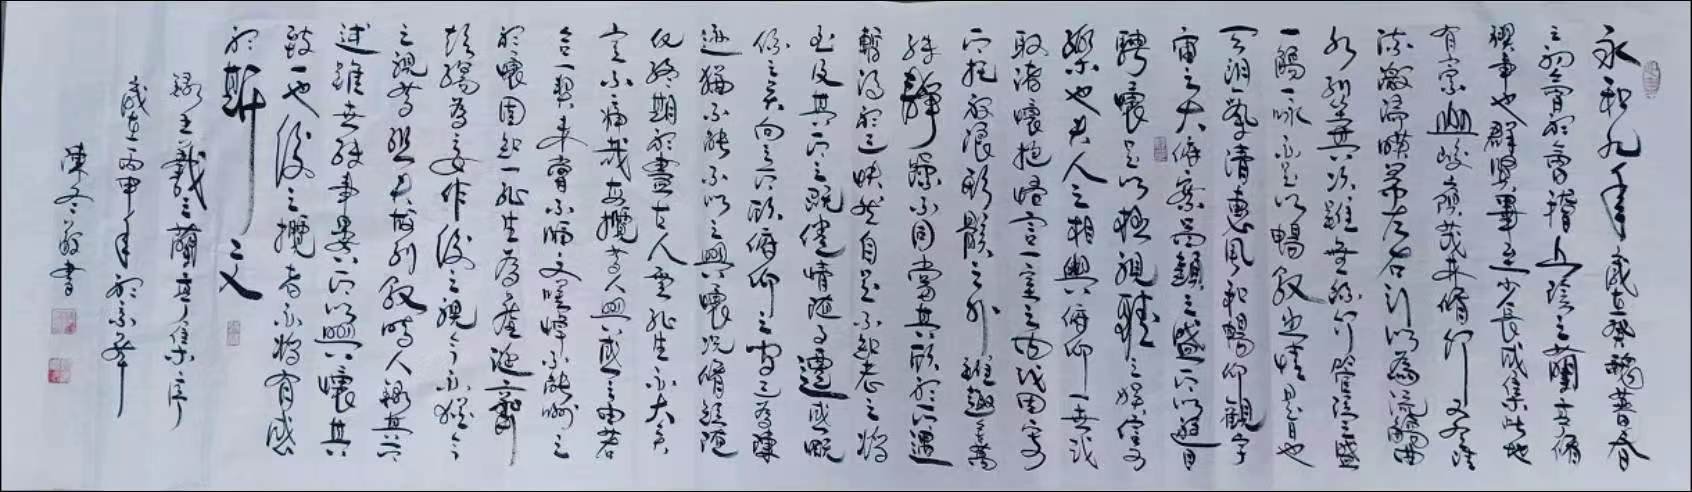 永和九年歲在癸醜暮春
之初會於會稽山陰之蘭亭脩
禊事也群賢畢至少長咸集此地
有崇山峻嶺茂林脩竹又有清
流激湍暎帶左右引以為流觴曲
水列坐其次雖無絲竹管弦之盛
一觴一詠亦足以暢敘幽情是日也
天朗氣清惠風和暢仰觀宇
宙之大俯察品類之盛所以遊目
騁懷足以極視聽之娛信可
樂也夫人之相與俯仰一世或
取諸懷抱悟言一室之內或因寄
所托放浪形骸之外雖趣舍萬
殊靜躁不同當其欣於所遇
暫得於己快然自足不知老之將
至及其所之既倦情隨事遷感慨
係之矣向之所欣俯仰之間已為陳
迹猶不能不以之興懷況脩短隨
化終期於盡古人云死生亦大矣
豈不痛哉每攬昔人興感之由若
合一契未嘗不臨文嗟悼不能喻之
於懷固知一死生為虛誕齊
彭殤為妄作後之視今亦猶今
之視昔悲夫故列敘時人錄其所
述雖世殊事異所以興懷其
致一也後之攬者亦將有感
於斯文
錄王羲之蘭亭集序
歲在丙申年於京華
陳冬書